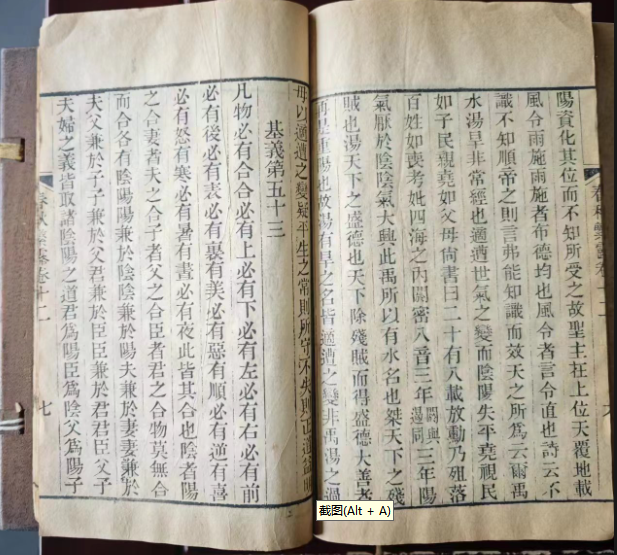 陽資化其位而不知所受之故聖主在上位天覆地載
風令雨施雨施者布德均也風令者言令直也詩云不
識不知順帝之則言弗能知識而效天之所為云爾禹
水湯旱非常經也適遭世氣之變而陰陽失平堯視民
如子民親堯如父母尚書曰二十有八載放勳乃殂落
百姓如喪考妣四海之內閼密八音三年
三年陽
氣厭於陰陰氣大興此禹所以有水名也桀天下之殘
賊也湯天下之盛德也天下除殘賊而得盛德大善者
再是重陽也故湯有旱之名皆適遭之變非禹湯之過
毋以適遭之變疑平生之常則所守不失則正道益明
基義第五十三
凡物必有合合必有上必有下必有左必有右必有前
必有後必有表必有裏有美必有惡有順必有逆有喜
必有怒有寒必有暑有晝必有夜此皆其合也陰者陽
之合妻者夫之合子者父之合臣者君之合物莫無合
而合各有陰陽陽兼於陰陰兼於陽夫兼於妻妻兼於
夫父兼於子子兼於父君兼於臣臣兼於君君臣父子
夫婦之義皆取諸陰陽之道君爲陽臣爲陰父爲陽子
春秋繁露卷十二
七
截图(Alt + A)